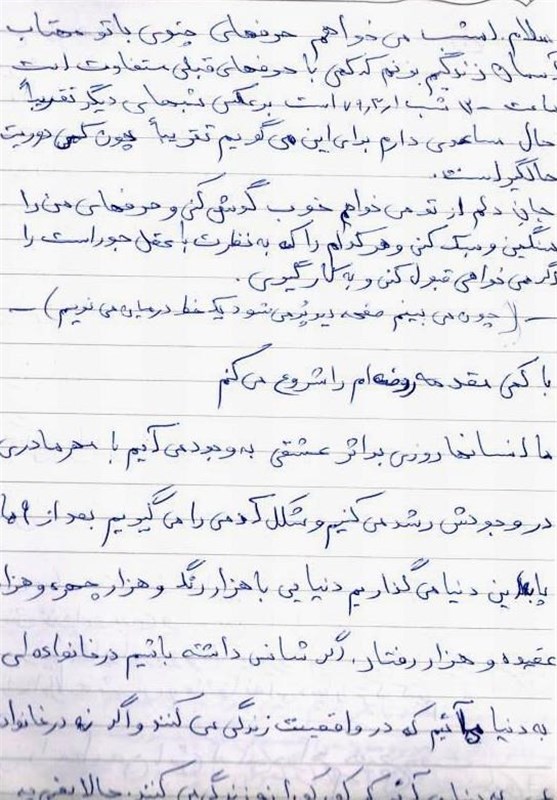 سلام. امشب می خواهم حرفهای خوبی با تو مهتاب
آسمان زندگیم بزنم که کمی با حرفهای قبلی متفاوت است
شب است برعکس شبهای دیگر تقریباً
حال مساعدی دارم برای این می گویم تقریباً چون کمی دوریت
حالگیر است.
جان دلم از تو می خواهم خوب گوش کنی و حرفهای من را
سنگین و سبک کنی و هر کدام را که به نظرت با عقل جور است را
اگر می خواهی قبول کنی و به کار گیری.
— (چون می بینم صفحه دیر پُر می شود یک خط در میان می نویسم) —
با کمی مقدمه روضه ام را شروع می کنم
ما انسانها روزی بر اثر عشقی به وجود می آئیم با مهر مادری
در وجودش رشد می کنیم و شکل آدمی را می گیریم بعد از ۹ ما
پا به این دنیا می گذاریم دنیایی با هزار رنگ و هزار چهره و هزا
عقیده و هزار رفتار. اگر شانس داشته باشیم در خانواده ای
به دنیا می آئیم که در واقعیت زندگی می کنند و اگر نه در خانواد
زندگی می کنند. حالا بقی به